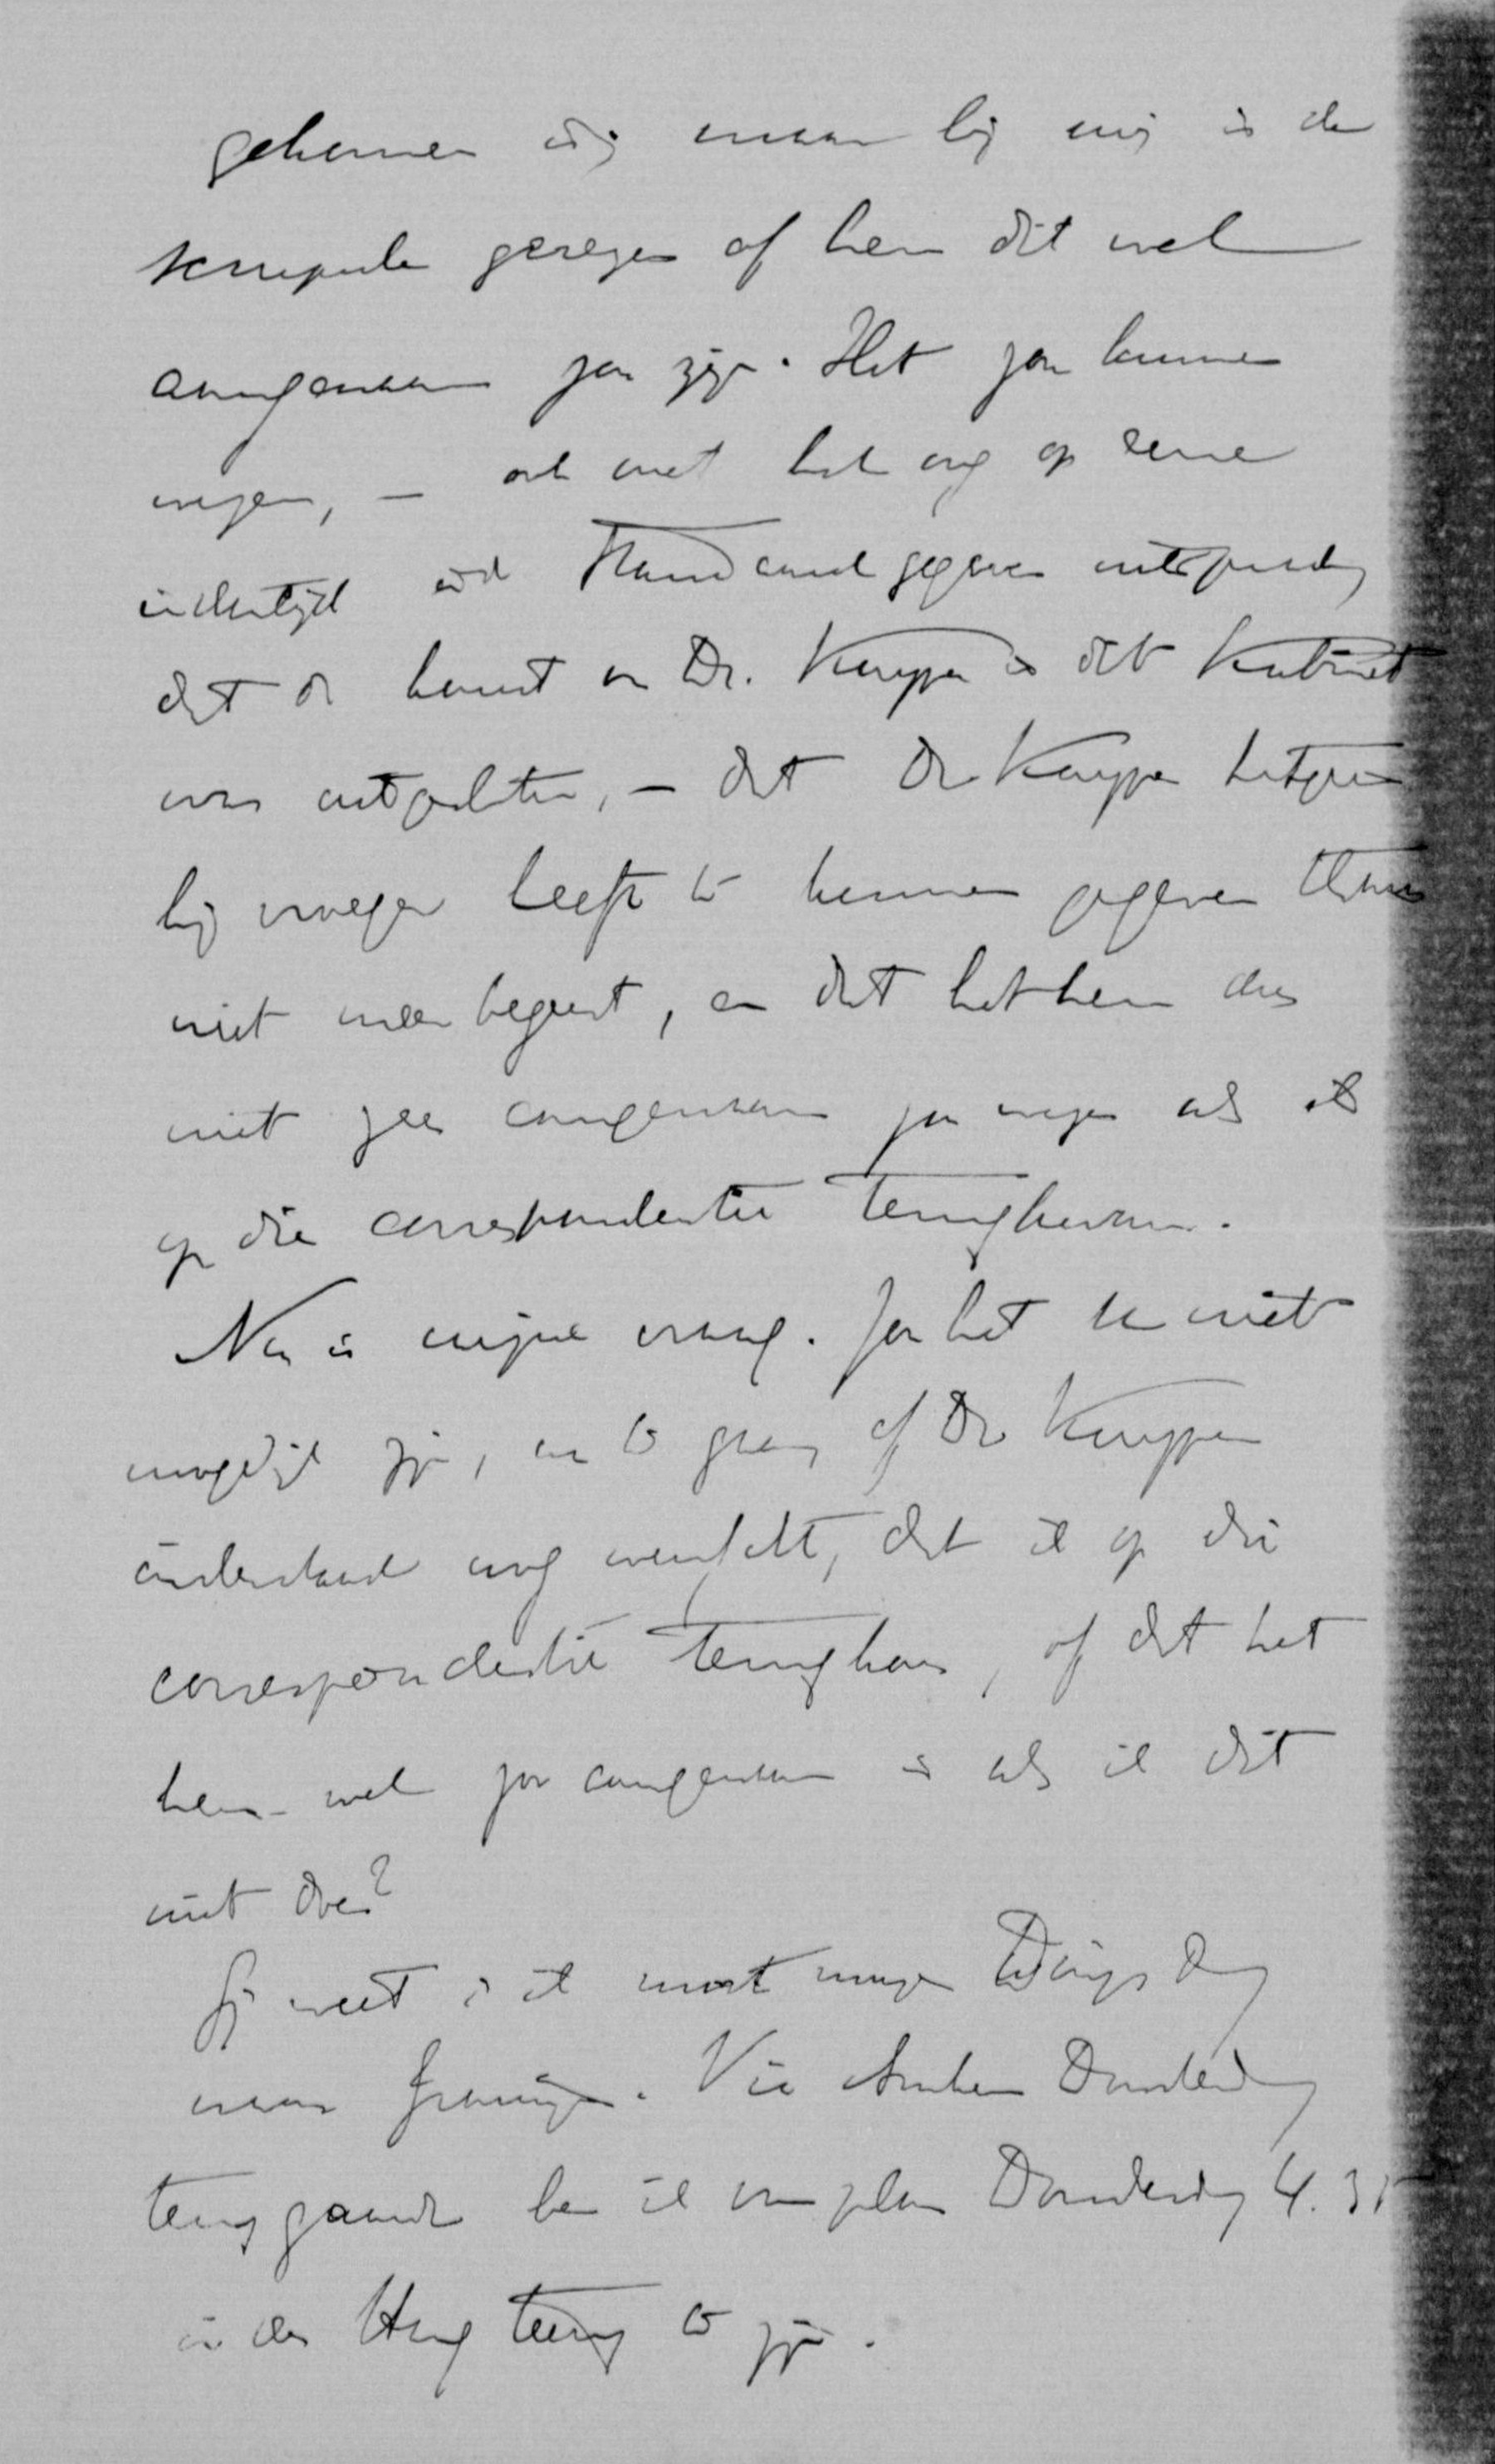 gekomen zij maar bij mij is de
scrupule gerezen of hem dit wel
aangenaam zou zijn. Het zou kunnen
wezen, — ook met het oog op eene
indertijd i/d Standaard gegeven uiteenzetting
dat de komst van Dr. Kuyper in dit Kabinet
was uitgesloten, — dat Dr Kuyper hetgeen
hij vroeger heeft te kennen gegeven thans
niet meer begeert, en dat het hem dus
niet zeer aangenaam zou wezen als ik
op die correspondentie terugkwam.
Nu is mijne vraag. Zou het U niet
mogelijk zijn, na te gaan of Dr Kuyper
inderdaad nog wenscht, dat ik op die
correspondentie terugkom, of dat het
hem wel zoo aangenaam is als ik dit
niet doe?
Gij weet ik moet morgen Dingsdag
naar Groningen. Via Arnhem Donderdag
teruggaande ben ik van plan Donderdag 4.35
in den Haag terug te zijn.